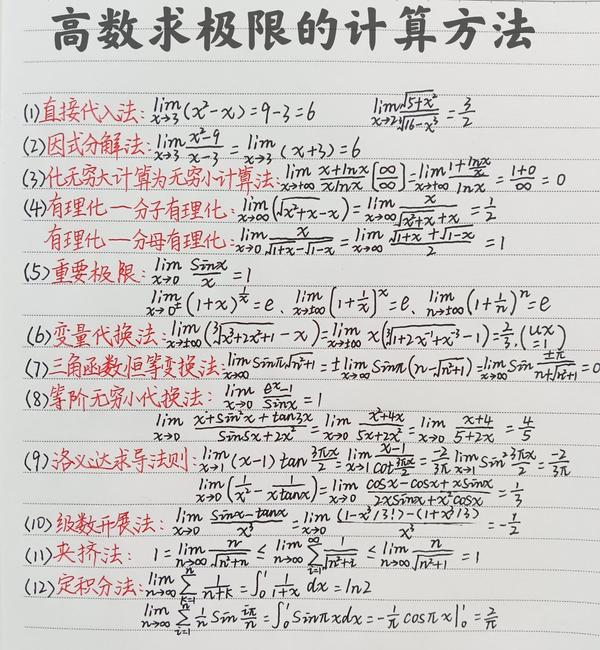 高数求极限的计算方法
(1)直接代入法: lim x→3 (x²-x)=9-3=6 lim x→2 √(5+x²)/³√(16-x³) = 3/2
(2)因式分解法: lim x→3 (x²-9)/(x-3) = lim x→3 (x+3)=6
(3)化无穷大计算为无穷小计算法: lim x→+∞ (x+lnx)/(xlnx) [∞/∞] = lim x→+∞ (1+lnx/x)/lnx = (1+0)/∞ = 0
(4)有理化一分子有理化: lim x→∞ (√(x²+x)-x) = lim x→∞ x/(√(x²+x)+x) = 1/2
有理化一分母有理化: lim x→0 x/(√(1+x)-√(1-x)) = lim x→∞ (√(1+x)+√(1-x))/2 = 1
(5)重要极限: lim x→0 sinx/x = 1
lim x→0± (1+x)^(1/x) = e、lim x→±∞ [1+1/x]^x = e、lim n→±∞ (1+1/n)^n = e
(6)变量代换法: lim x→±∞ (³√(x³+2x²+1)-x) = lim x→±∞ x(³√(1+2x⁻¹+x⁻³)-1) = 2/3.(ux=1)
(7)三角函数恒等变换法: lim x→∞ sinπ√(n²+1) = ± lim x→∞ sinπ(n-√(n²+1)) = lim x→∞ sin ±π/(n+√(n²+1)) = 0
(8)等阶无穷小代换法: lim x→0 (eˣ-1)/sinx = 1
lim x→0 (x+sin²x+tan3x)/(sin5x+2x²) = lim x→0 (x²+4x)/(5x+2x²) = lim x→0 (x+4)/(5+2x) = 4/5
(9)洛必达求导法则: lim x→1 (x-1)tan 3πx/2 = lim x→1 (x-1)/cot(3πx/2) = -2/3π lim x→1 sin² 3πx/2 = -2/3π
lim x→0 (1/x² - 1/(xtanx)) = lim x→0 (cosx-cosx+xsinx)/(2xsinx+x²cosx) = 1/3
(10)级数开展法: lim x→0 (sinx-tanx)/x³ = lim x→0 ((1-x³/3!)-(1+x³/3))/x³ = -1/2
(11)夹挤法: 1 = lim n→∞ n/√(n²+n) ≤ lim n→∞ ∑ i=1 ∞ 1/√(n²+i) ≤ lim n→∞ n/√(n²+1) = 1
(12)定积分法: lim n→∞ ∑ k=1 n 1/(n+k) = ∫₀¹ 1/(1+x) dx = ln2
lim n→∞ ∑ i=1 n 1/n sin iπ/n = ∫₀¹ sinπxdx = -1/π cosπx|₀¹ = 2/π